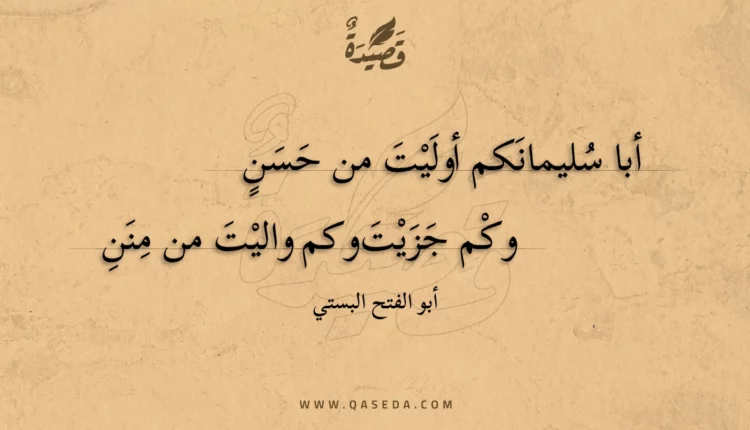 قَصِيدَةٌ
أبا سُليمانَكم أولَيْتَ من حَسَنٍ
وكْم جَزَيْتَ‌وكم واليْتَ من مِنَنِ
أبو الفتح البستي
WWW.QASEDA.COM